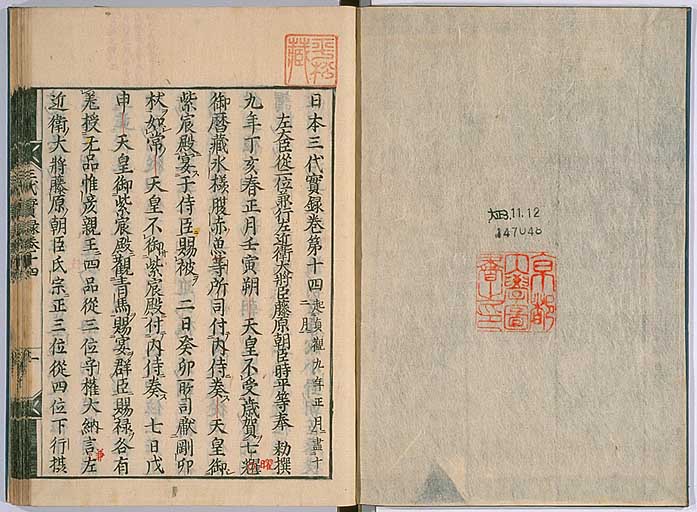 京都
大學圖
書之印
昭.11.12
147048
平松
藏
日本三代實録巻第十四 起貞觀九年正月盡十二月
左大臣從二位兼行左近衛大將臣藤原朝臣時平等奉 勅撰
九年丁亥春正月壬寅朔 天皇不受歳賀七耀
曜
御曆藏氷様腹赤魚等所司付内侍奏 天皇御
紫宸殿宴于侍臣賜被 二日癸卯所司獻剛卯
杖如常 天皇不御紫宸殿付内侍奏 七日戊
申 天皇御紫宸殿觀青馬賜宴群臣賜禄各有
差授无品惟彦親王四品從三位守權大納言左
近衛大將藤原朝臣氏宗正三位從四位下行摂
三代實録巻十四
一